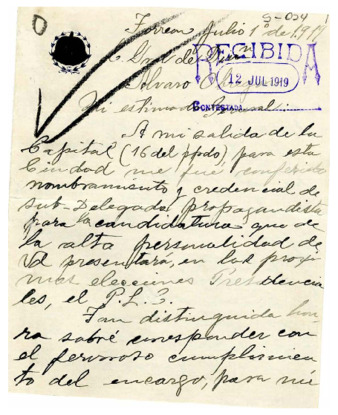 S-024 1
Torreon Julio 1º de 1919
C. Gral de Div.
Alvaro Obregon
RECIBIDA
12 JUL 1919
CONTESTADA
Mi estimado general:
A mi salida de la
Capital (16 del ppdo) para esta
Ciudad me fue conferido
nombramiento y credencial de
sub-Delegado propagandista
para la candidatura que de
la alta personalidad de
Vd presentará, en las proxi
mas elecciones Presidencia
les, el P.L.
Tan distinguida hon
ra sabré corresponder con
el fervoroso cumplimien
to del encargo, para mi